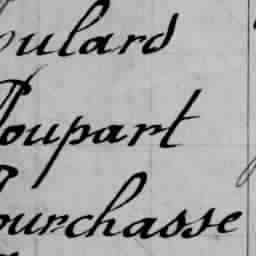 oulard
Poupart
Pourchasse